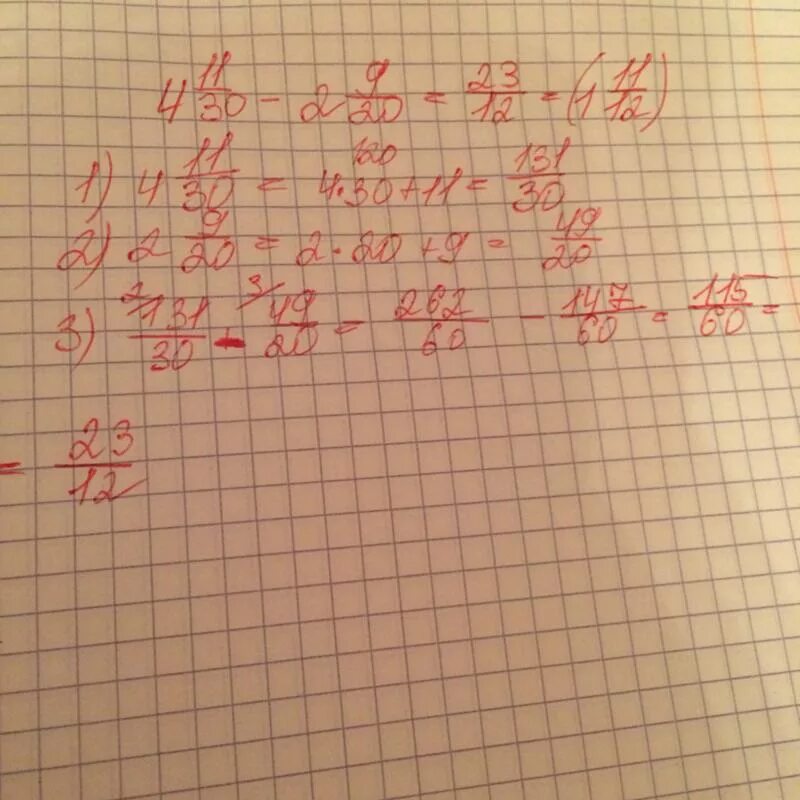 4 11/30 - 2 9/20 = 23/12 = (1 11/12)
120
1) 4 11/30 = 4·30+11 = 131/30
2) 2 9/20 = 2·20+9 = 49/20
3) 2/ 131/30 - 3/ 49/20 = 262/60 - 147/60 = 115/60 =
= 23/12